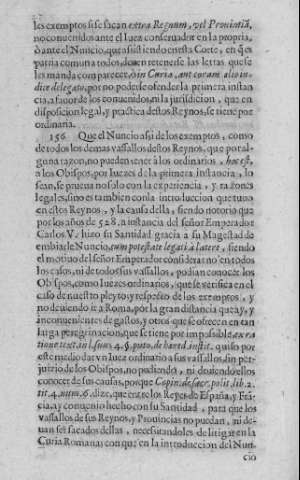 les exemptos si se sacan extra Regnum, vel Prouintiā,
no conuenidos ante el Iuez conseruador en la propria,
ò ante el Nuncio, que assistiendo en esta Corte, en q̃ es
patria comun a todos, deuen retenerse las letras que se
les manda comparecer, ò in Curia, aut coram alio in-
dice delegato, por no poderse ofender la primera instan
cia, a fauor de los conuenidos, ni la jurisdicion, que en
disposicion legal, y practica destos Reynos, se tiene por
ordinaria.
156 Que el Nuncio assi de los exemptos, como
de todos los demas vassallos destos Reynos, que por al-
guna razon, no pueden venir a los ordinarios, hoc est,
a los Obispos, por Iuezes de la primera instancia, lo
sean, se prueua no solo con la experiencia, y razones
legales, sino es tambien con la introduccion que tuuo
en estos Reynos, y la causa della, siendo notorio que
por los años de 528, a instancia del señor Emperador
Carlos V. tuuo su Santidad gracia a su Magestad de
embiarle Nuncio, cum potestate legati à latere, siendo
el motiuo del señor Emperador considerar no en todos
los casos, ni de todos sus vassallos, podian conocer los
Obispos, como Iuezes ordinarios, que se verifica en el
caso de nuestro pleyto y respecto de los exemptos, y
no deuiendo ir a Roma, por la gran distancia que ay, y
inconuenientes de gastos, y otros que se ofrecen en tan
larga peregrinacion, que se tiene por impossible, ex ra
tione text. in l. sunt 4. §. puto, de hæred. instit. quiso por
este medio dar vn Iuez ordinario a sus vassallos, sin per-
juizio de los Obispos, no pudiendo, ni deuiendo ellos
conocer de sus causas, porque Copin. de sacr. polit. lib. 2.
tit. 4. num. 6. dize, que entre los Reyes de España, y Frã-
cia, ay conuenio hecho con su Santidad, para que los
vassallos de sus Reynos, y Prouincias no puedan, ni de-
uan ser sacados dellas, necesitandoles de litigar en la
Curia Romana: con que en la introduccion del Nun-
cio